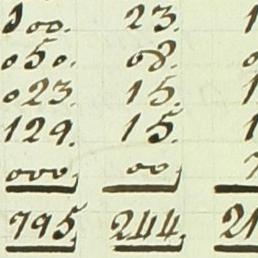 100. 23. 1
050. 08. 0
023. 15. 1
129. 15. 1
000. 00.
795. 244. 21